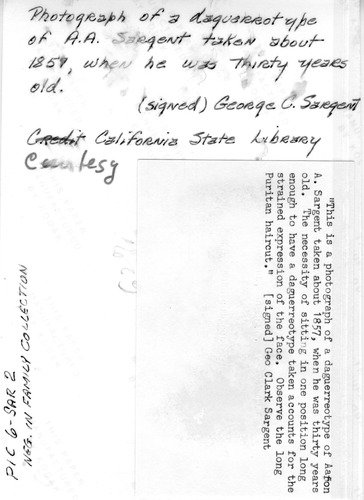 Photograph of a daguerreotype
of A.A. Sargent taken about
1857, when he was thirty years
old.
(signed) George C. Sargent
Credit California State Library
Courtesy
"This is a photograph of a daguerreotype of Aaron
A. Sargent taken about 1857, when he was thirty years
old. The necessity of sitting in one position long
enough to have a daguerreotype taken accounts for the
strained expression of the face. Observe the long
Puritan haircut." [signed] Geo Clark Sargent
PIC 6-SAR 2
NEG. IN FAMILY COLLECTION